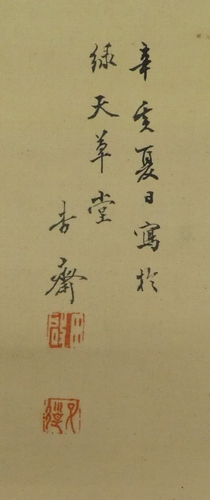 辛亥夏日寫於
綠天草堂
杏齋